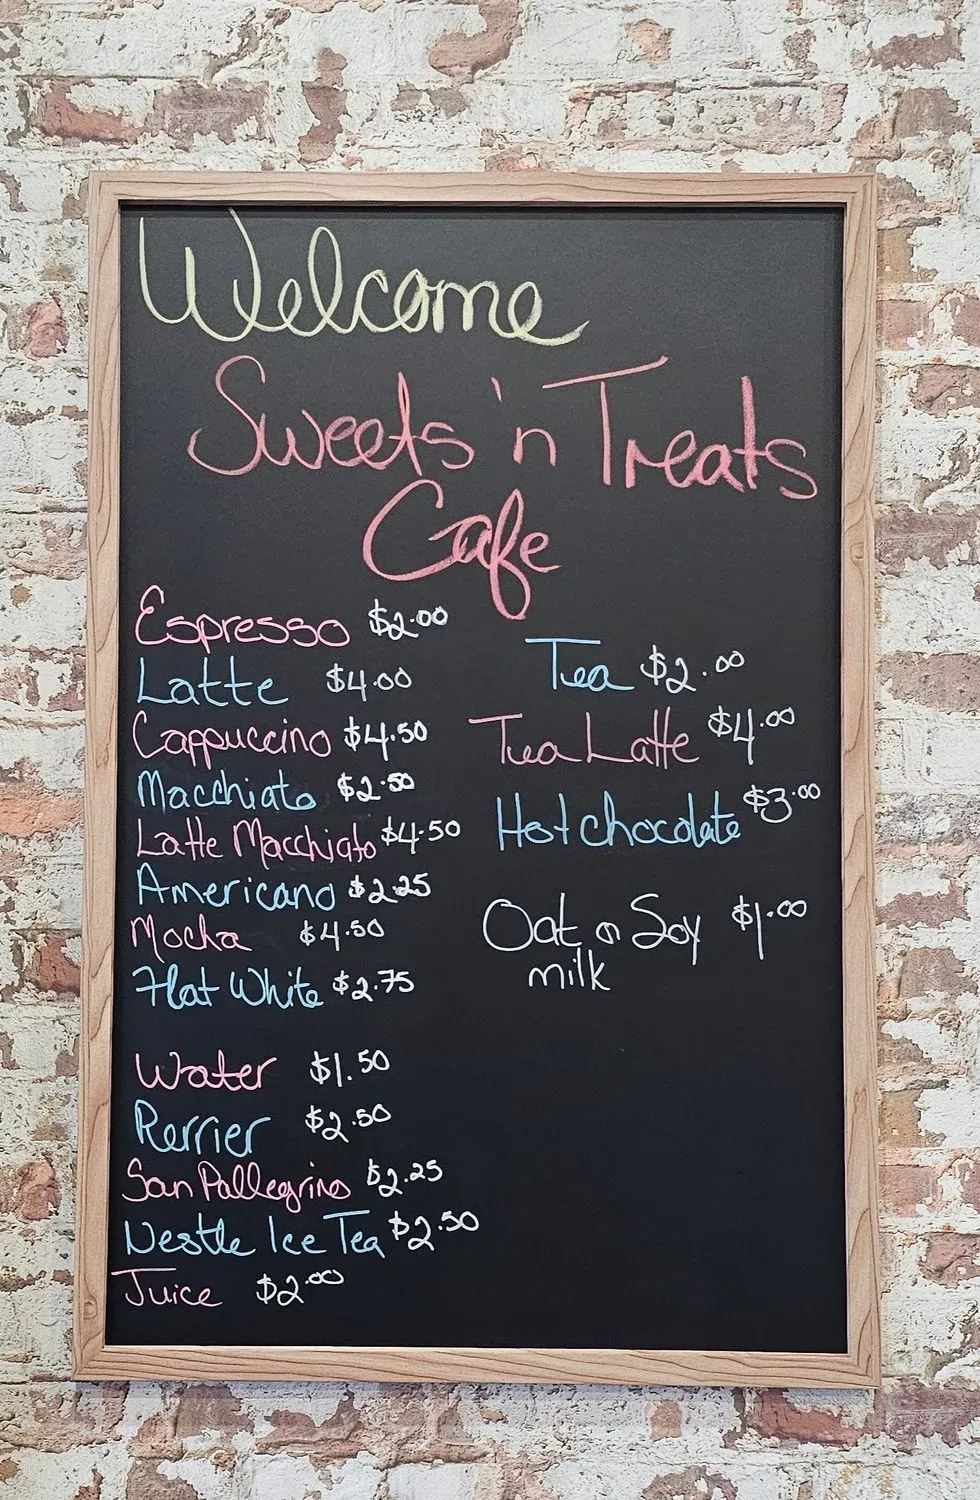 Welcome
Sweets 'n Treats
Cafe
Espresso $2.00
Latte $4.00
Cappuccino $4.50
Macchiato $2.50
Latte Macchiato $4.50
Americano $2.25
Mocha $4.50
Flat White $2.75
Water $1.50
Perrier $2.50
San Pallegrino $2.25
Nestle Ice Tea $2.50
Juice $2.00
Tea $2.00
Tea Latte $4.00
Hot chocolate $3.00
Oat or Soy $1.00
milk